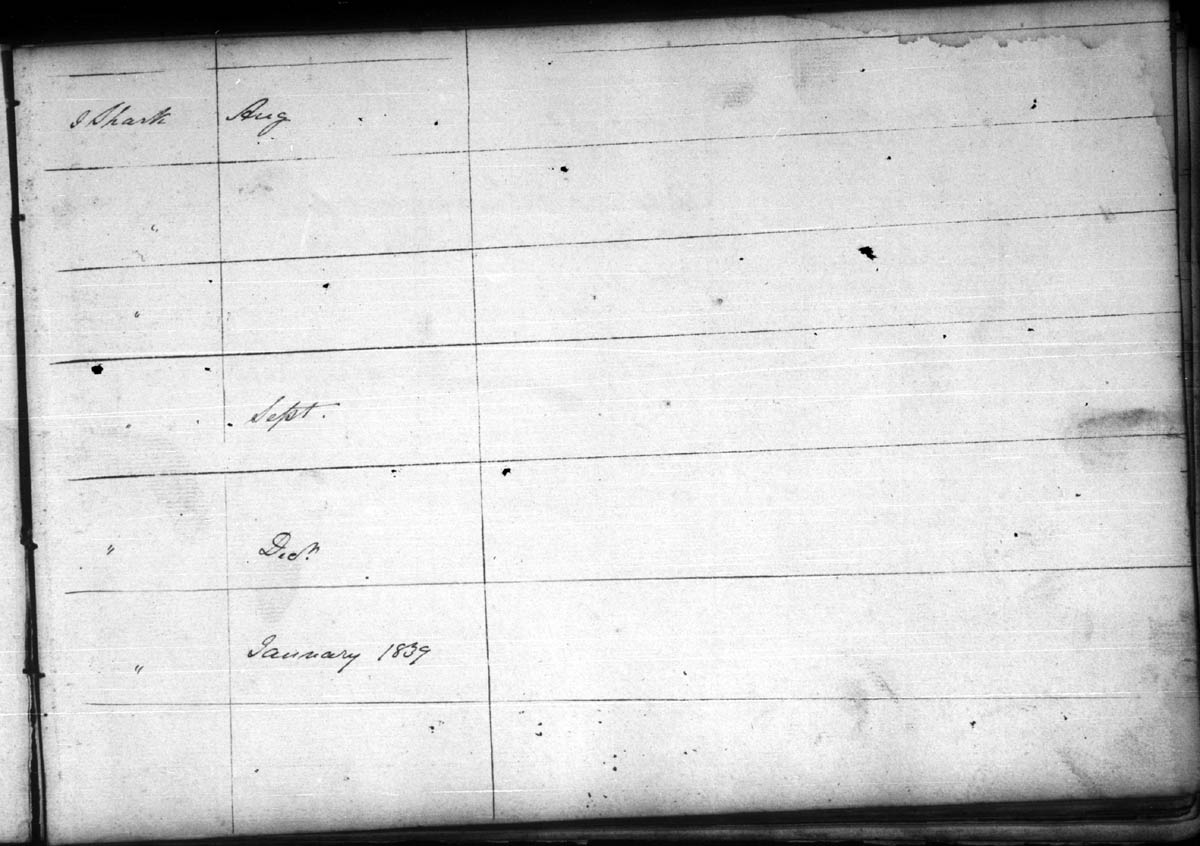 J Shark Aug
"
"
" Sept.
" Decr
" January 1839